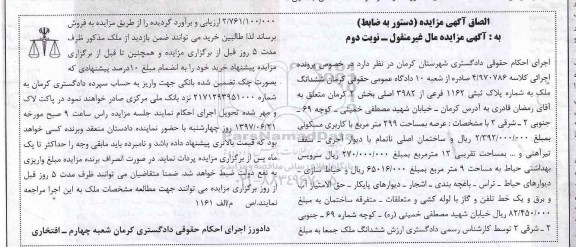 الصاق آگهی مزایده (دستور به ضابط)
به : آگهی مزایده مال غیرمنقول ـ نوبت دوم
اجرای احکام حقوقی دادگستری شهرستان کرمان در نظر دارد در خصوص پرونده
اجرائی کلاسه ۴/۹۷۰۷۸۶ صادره از شعبه ۱۰ دادگاه عمومی حقوقی کرمان ششدانگ
ملک به شماره پلاک ثبتی ۱۱۶۲ فرعی از ۳۹۸۲ اصلی بخش ۲ کرمان متعلق به
آقای رمضان قادری به آدرس کرمان ـ خیابان شهید مصطفی خمینی ـ کوچه ۶۹ ـ
جنوبی ۲ ـ شرقی ۳ با مشخصات : عرصه بمساحت ۲۹۹ متر مربع با کاربری مسکونی
بمبلغ ۲/۳۹۲/۰۰۰/۰۰۰ ریال و ساختمان اصلی ناتمام با دیوار آجری ـ سقف
تیرآهنی و ... بمساحت تقریبی ۱۲ مترمربع بمبلغ ۲۷۰/۰۰۰/۰۰۰ ریال سرویس
بهداشتی حیاط به مساحت ۹ متر مربع بمبلغ ۶۵۰۱۶/۰۰۰ ریال و خیاط سازی ـ
دیوارهای حیاط ـ تراس ـ باغچه بندی ـ اشجار ـ دیوارهای پایکار ـ حق الامتیاز آب
و برق و یک خط تلفن و گاز با لوله کشی و متعلقات ـ متفرقه ساختمان به مبلغ
۸۲/۴۵۰/۰۰۰ ریال خیابان شهید مصطفی خمینی (ره) ـ کوچه شماره ۶۹ ـ جنوبی
۲ ـ شرقی ۲ توسط کارشناس رسمی دادگستری ارزش ششدانگ ملک جمعا به مبلغ
۲/۷۶۱/۱۰۰/۰۰۰ ارزیابی و برآورد گردیده را از طریق مزایده به فروش
برساند لذا طالبین خرید می توانند ضمن بازدید از ملک مذکور ظرف
مدت ۵ روز قبل از برگزاری مزایده و همچنین تا قبل از برگزاری
مزایده پیشنهاد خرید خود را به انضمام مبلغ ۱۰درصد پیشنهادی که
بصورت چک تضمین شده بانکی جهت واریز به حساب سپرده دادگستری کرمان به
شماره ۲۱۷۱۲۹۳۹۵۱۰۰۰ نزد بانک ملی مرکزی صادر خواهند نمود در پاکت لاک
و مهر شده تحویل اجرای احکام نمایند جلسه مزایده راس ساعت ۹ صبح مورخه
۱۳۹۷/۰۶/۲۱ روز چهارشنبه با حضور نماینده دادستان منعقد وبرنده کسی خواهد
بود که قیمت بالاتری پیشنهاد داده باشد و نامبرده باید مابقی وجه را حداکثر تا یک
ماه پس از برگزاری مزایده پردات نماید. در صورت انصراف برنده مزایده مبلغ واریزی
به نفع دولت ضبط خواهد شد. ضمنا متقاضیان می توانند ظرف مدت ۵ روز قبل
از روز برگزاری مزایده می توانند جهت مطالعه مشخصات ملک به این اجرا مراجعه
نمایند./ص م/الف ۱۱۶۱
دادورز اجرای احکام حقوقی دادگستری کرمان شعبه چهارم ـ افتخاری